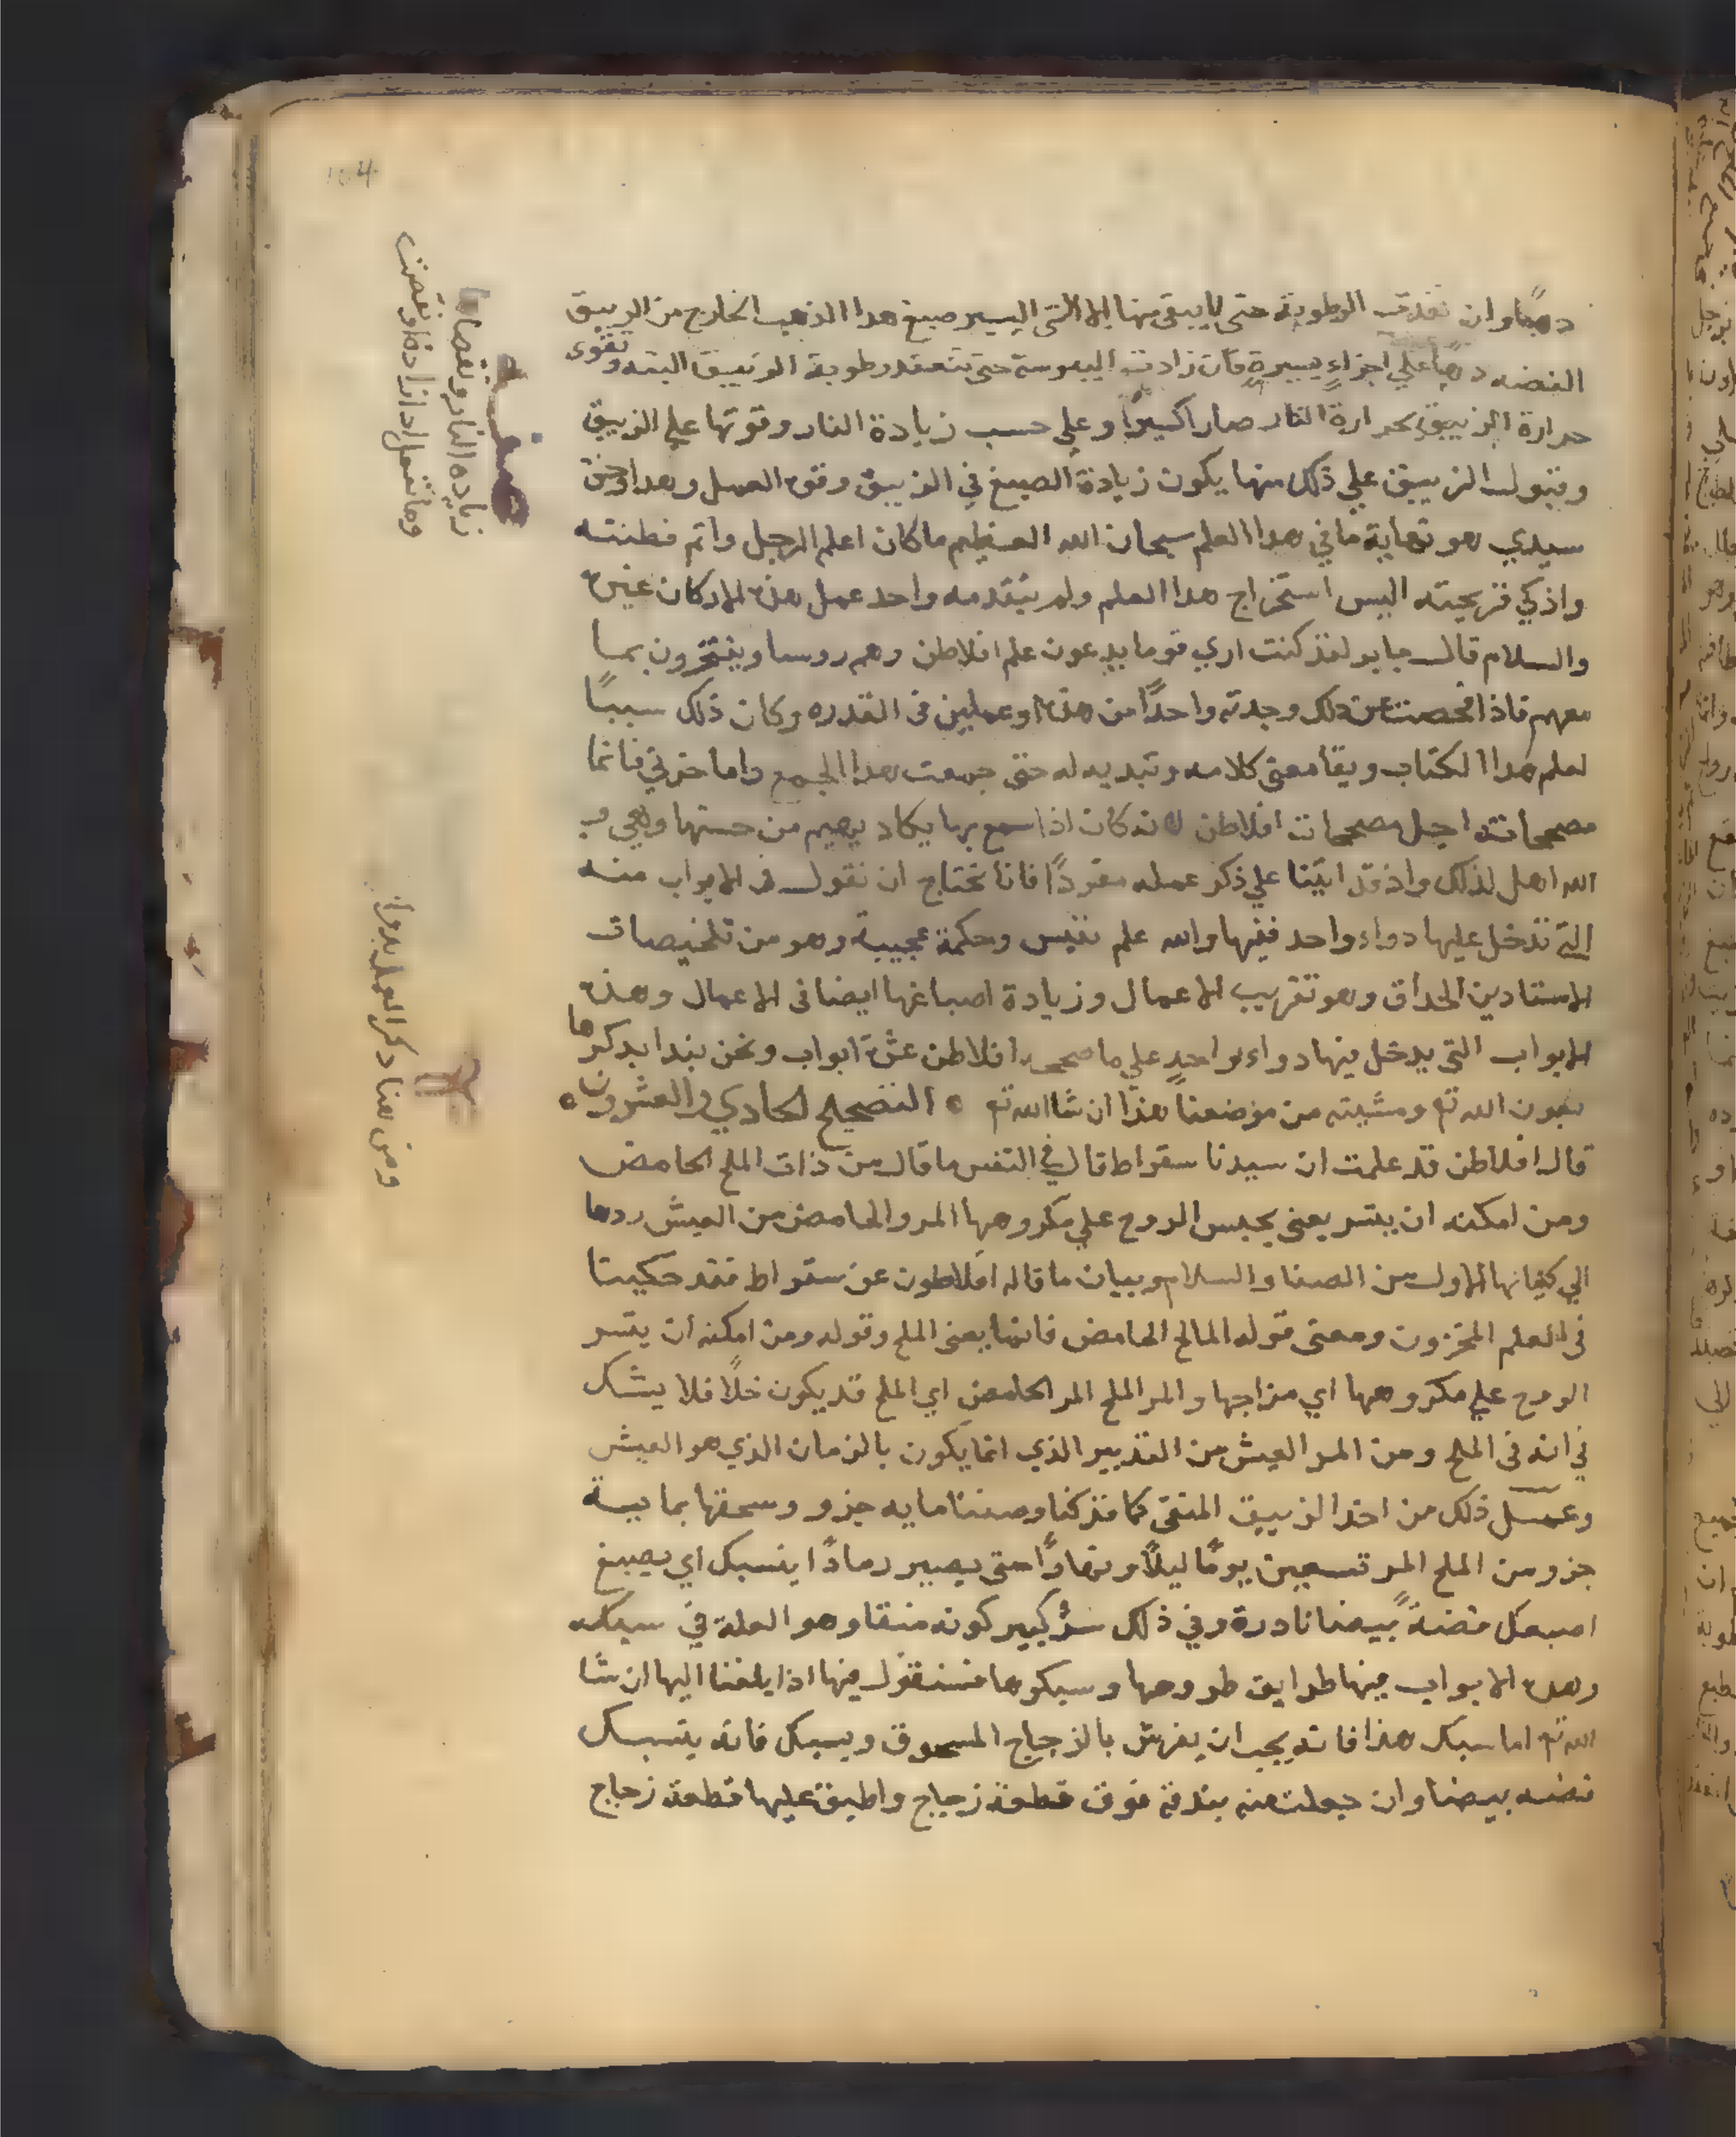 دهبًا وان نفدت الرطوبة حتى لا يبقى منها الا الشي اليسير صبغ هدا الذهب الخارج من الزيبق
الفضه دهبًا علي اجزاءٍ يسيرةٍ فان زادت اليبوسة حتى تنعقد رطوبة الزيبق البته وتقوى
حرارة الزيبق بحرارة النار صار اكسيرًا وعلي حسب زيادة النار وقوتها علي الزيبق
وقبول الزيبق علي ذلك منها يكون زيادة الصبغ في الزيبق وقوه العمل وهدا وحق
سيدي هو نهاية ما في هدا العلم سبحان الله العظيم ما كان اعلم الرجل واتم فطنته
واذكي قريحته اليس استخراج هدا العلم ولم يتقدمه واحد عمل هذه الاركان غيره
والسلام قال جابر لقد كنت اري قوما يدعون علم افلاطن وهم روسا ويفتخرون بما
معهم فاذا فحصت عن دلك وجدته واحدًا من هذه او عملين في القدره وكان ذلك سببًا
لعلم هدا الكتاب وبقا معنى كلامه وتبديه له حتى جمعت هدا الجمع واما حزني فانما
مصححاته اجل مصححات افلاطن لانه كان اذا سمع بها يكاد يهيم من حسنها وهي و
الله اهل لذلك واذ قد اتينا علي ذكر عمله مفردًا فانا نحتاج ان نقول في الابواب منه
التي تدخل عليها دواء واحد ففيها والله علم نفيس وحكمة عجيبة وهو من تلخيصات
الاستادين الحداق وهو تقريب الاعمال وزيادة اصباغها ايضا في الاعمال وهذه
الابواب التي يدخل فيها دواءٍ واحدٍ علي ما صححه افلاطن عشرة ابواب ونحن نبدا بدكرها
بعون الله تع ومشيته من موضعنا هذا ان شا الله تع ۵ التصحيح الحادي والعشرون ۵
قال افلاطن قد علمت ان سيدنا سقراط قال في النفس ما قال من ذات الملح الحامض
ومن امكنه ان يقسر يعني يحبس الروح علي مكروهها المر والحامض من العيش ردها
الي كيانها الاول من الصفا والسلام وبيان ما قاله افلاطون عن سقراط فقد حكيناه
في العلم المخزون ومعنى قوله المالح الحامض فانما يعني الملح وقوله ومن امكنه ان يقسر
الروح علي مكروهها اي مزاجها والمر الملح المر الحامض اي الملح قد يكون خلًا فلا يشك
في انه في الملح ومن المر العيش من التدبير الذي انما يكون بالزمان الذي هو العيش
وعمل ذلك من اخذ الزيبق المنقى كما قد كنا وصفنا مايه جزو وسحقها بمايبة
جزو من الملح المر تسعين يومًا ليلًا ونهارًا حتى يصير رمادًا ينسبك اي يصبغ
اصبعك فضةً بيضا نادرة وفي ذلك سرٌ كبير كونه منقا وهو العلة في سبكه
وهده الابواب فيها طرايق طروحها وسبكوها فسنقول فيها اذا بلغنا اليها ان شا
الله تع اما سبك هذا فانه يجب ان يفرش بالزجاج المسحوق ويسبك فانه ينسبك
فضه بيضا وان جعلت منه بندقة فوق قطعة زجاج واطبق عليها قطعة زجاج
صفة
زياده النار ونقصانها
وما تفعل اذا زادة او نقصت
ومن هنا دكر العمل بدوا